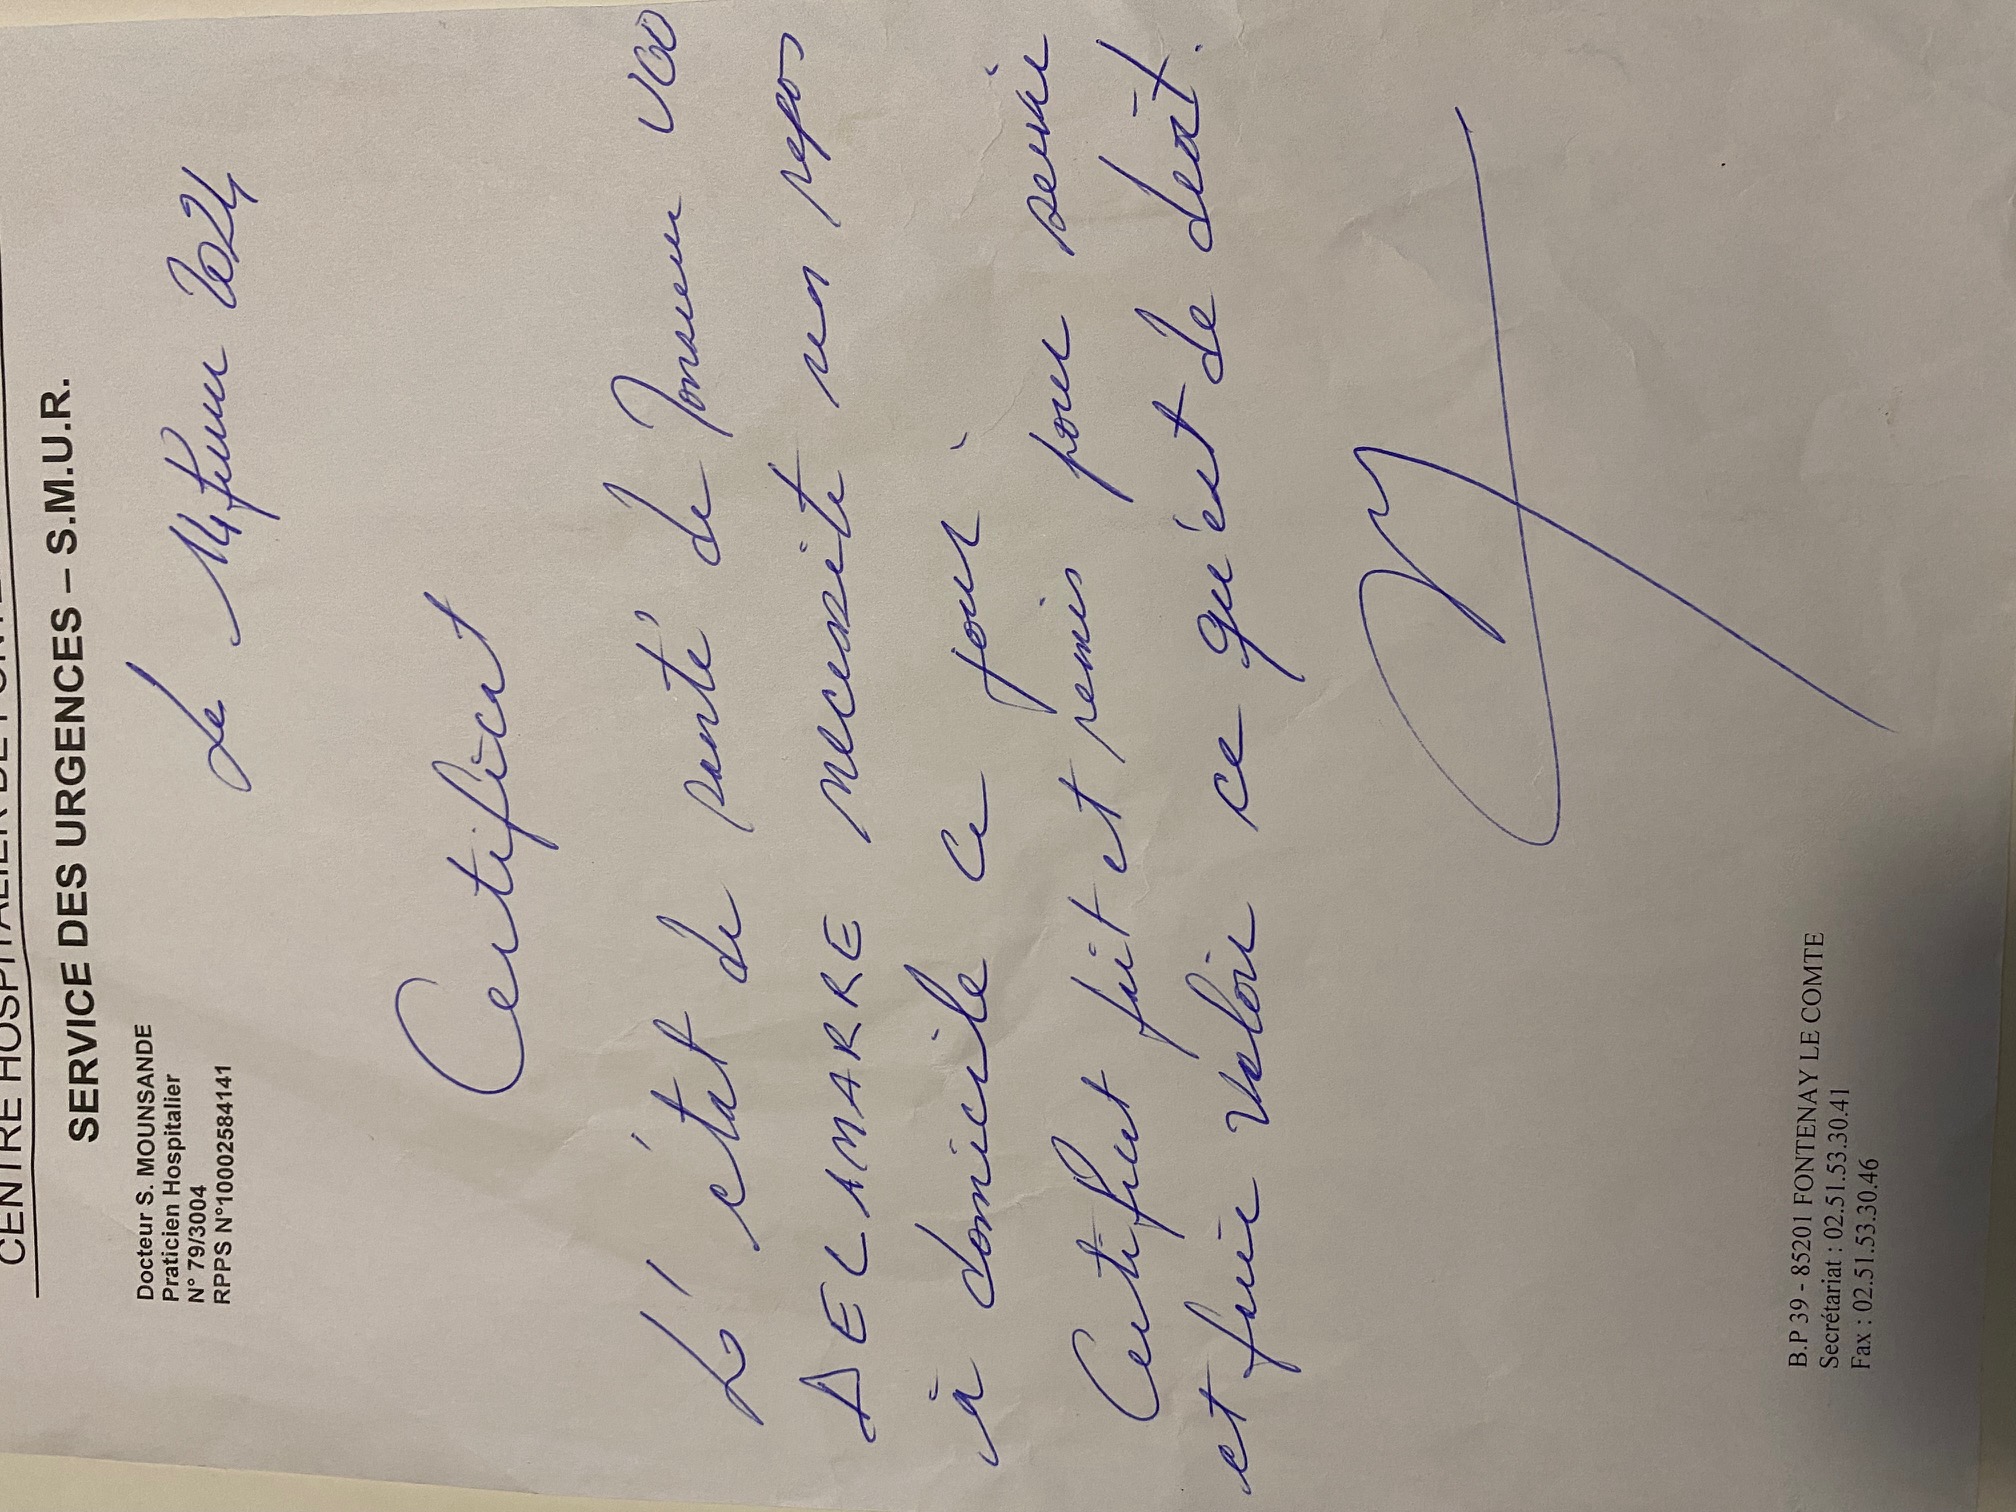 CENTRE HOSPITALIER DE
SERVICE DES URGENCES – S.M.U.R.
Docteur S. MOUNSANDE
Praticien Hospitalier
N° 79/3004
RPPS N°10002584141
Le 14 février 2024
Certificat
L'état de santé de Monsieur UGO
DELAMARRE necessite un repos
à domicile ce jour.
Certificat fait et remis pour servir
et faire valoir ce qu'est de droit.
B.P 39 - 85201 FONTENAY LE COMTE
Secrétariat : 02.51.53.30.41
Fax : 02.51.53.30.46